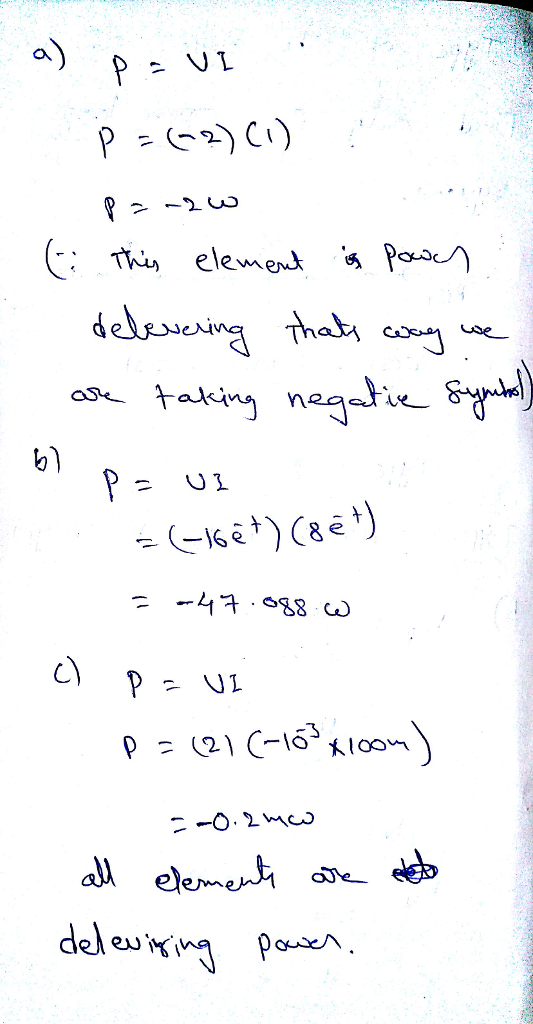 a) P = VI
P = (-2) (1)
P = -2 W
(∵ This element is Power
delevering thats way we
are taking negative Symbol)
b) P = VI
= (-16e⁻ᵗ) (8e⁻ᵗ)
= -47.088 W
c) P = VI
P = (2) (-10⁻³ x 100m)
= -0.2 mW
all elements are
deleviring power.